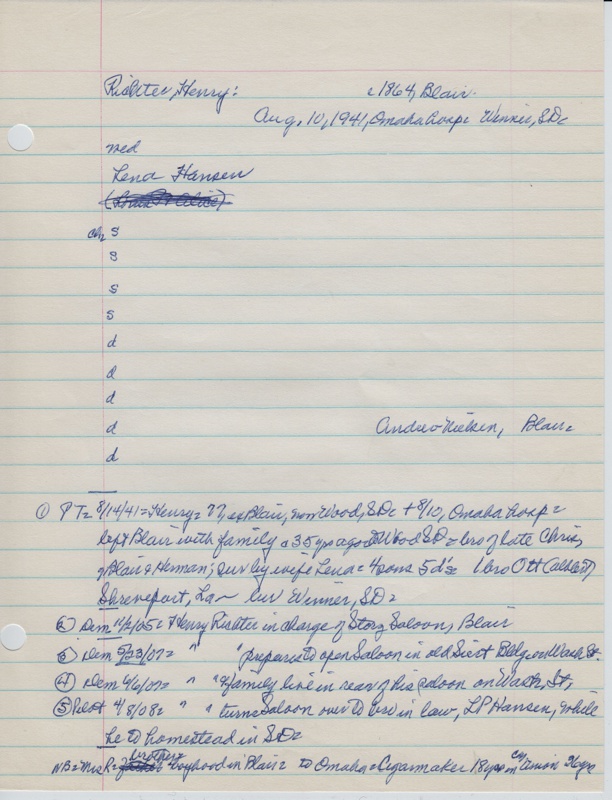 Richter, Henry: c 1864, Blair.
Aug, 10, 1941, Omaha hosp= Winner, SD=
med
Lena Hansen
ch= s
s
s
s
d
d
d
d Andrew Nielsen, Blair=
d
① PT= 8/14/41= Henry= 77, ex Blair, now Wood, SD= + 8/10, Omaha hosp=
left Blair with family c 35 yrs ago= Wood SD= bro of late Chris
of Blair & Herman; sur by wife Lena= 4 sons 5 d's= 1 bro Ott
Shreveport, La~ bur Winner, SD=
② Dem 11/2/05= Henry Richter in charge of Storz Saloon, Blair
③ Dem 5/23/07= " " prepares to open Saloon in old Bldg on Wash St.
④ Dem 6/6/07= " " & family live in rear of his saloon on Wash, St,
⑤ Pilot 4/8/08= " " turns Saloon over to bro in law, LP Hansen, while
he to homestead in SD=
NB= Mrs R= brother= boyhood in Blair= to Omaha= Cigarmaker 18 yrs= union 26 yrs